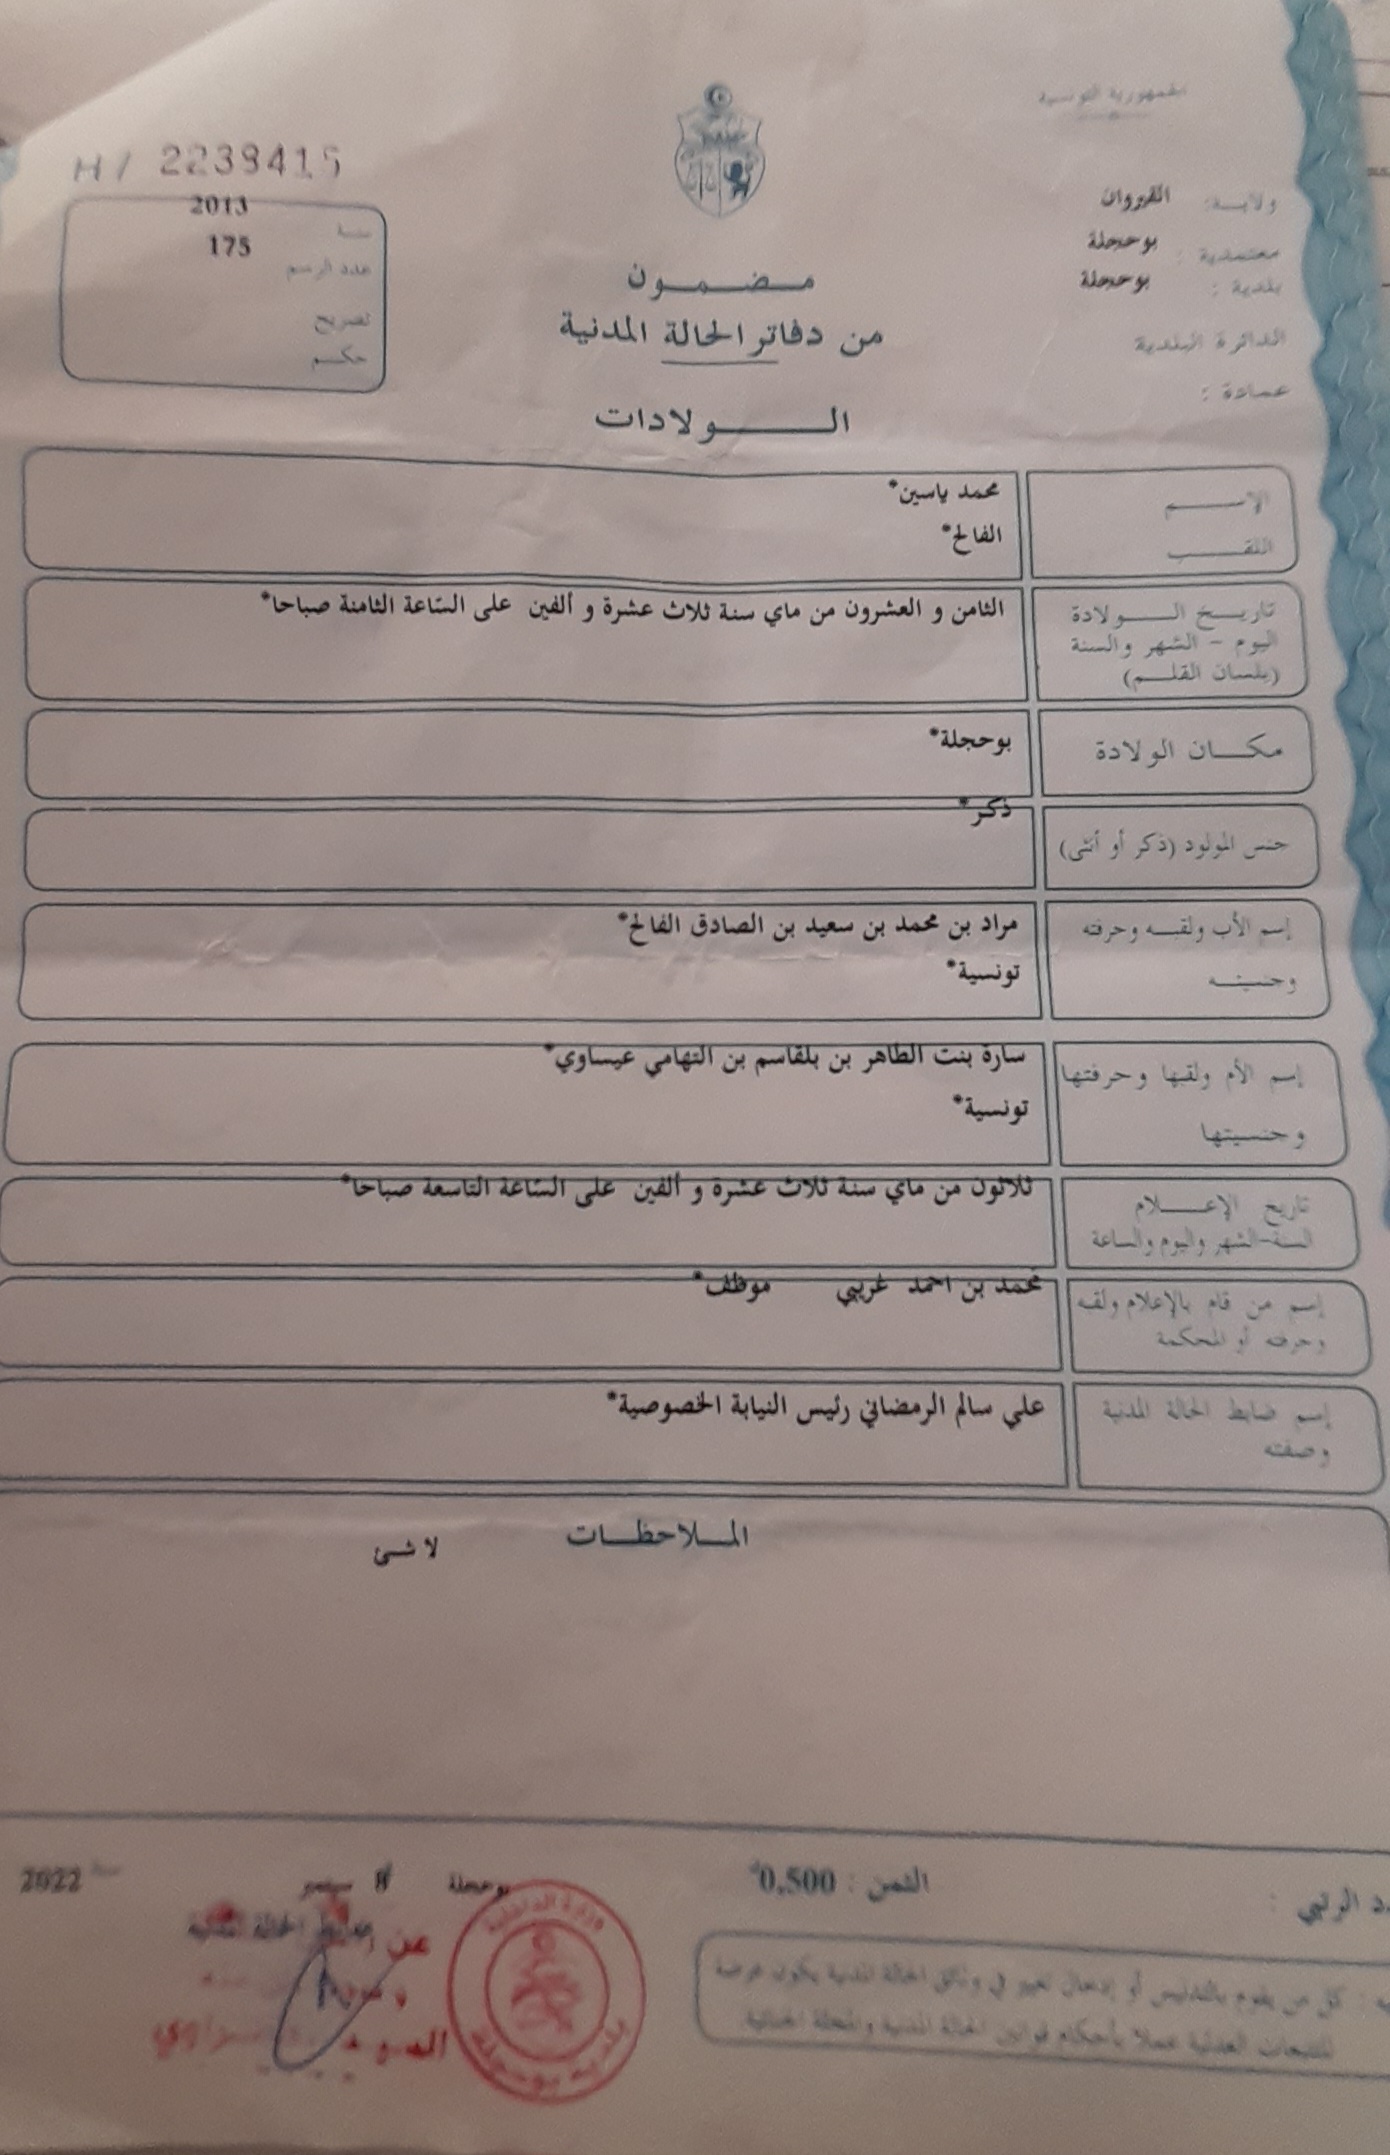 الجمهورية التونسية
H / 2239415
ولايـة: القيروان
معتمدية : بوحجلة
بلدية : بوحجلة
الدائرة البلدية
عمادة :
سنة 2013
عدد الرسم 175
تصريح
حكم
مضمون
من دفاتر الحالة المدنية
الولادات
الإسم محمد ياسين*
اللقب الفالح*
تاريخ الولادة الثامن و العشرون من ماي سنة ثلاث عشرة و ألفين على السّاعة الثامنة صباحا*
اليوم - الشهر والسنة
(بلسان القلم)
مكان الولادة بوحجلة*
جنس المولود (ذكر أو أنثى) ذكر*
إسم الأب ولقبه وحرفته مراد بن محمد بن سعيد بن الصادق الفالح*
وجنسيته تونسية*
إسم الأم ولقبها وحرفتها سارة بنت الطاهر بن بلقاسم بن التهامي عيساوي*
وجنسيتها تونسية*
تاريخ الإعلام ثلاثون من ماي سنة ثلاث عشرة و ألفين على السّاعة التاسعة صباحا*
السنة-الشهر واليوم والساعة
إسم من قام بالإعلام ولقبه محمد بن احمد غريبي موظف*
وحرفته أو المحكمة
إسم ضابط الحالة المدنية علي سالم الرمضاني رئيس النيابة الخصوصية*
وصفته
الملاحظات
لا شئ
الثمن : 0,500د
بوحجلة 8 سبتمبر سنة 2022
ضابط الحالة المدنية
عن
وزارة الداخلية
بلدية بوحجلة
كل من يقوم بالتدليس أو إدخال تغيير في وثائق الحالة المدنية يكون عرضة
للتتبعات العدلية عملا بأحكام قوانين الحالة المدنية والمجلة الجنائية